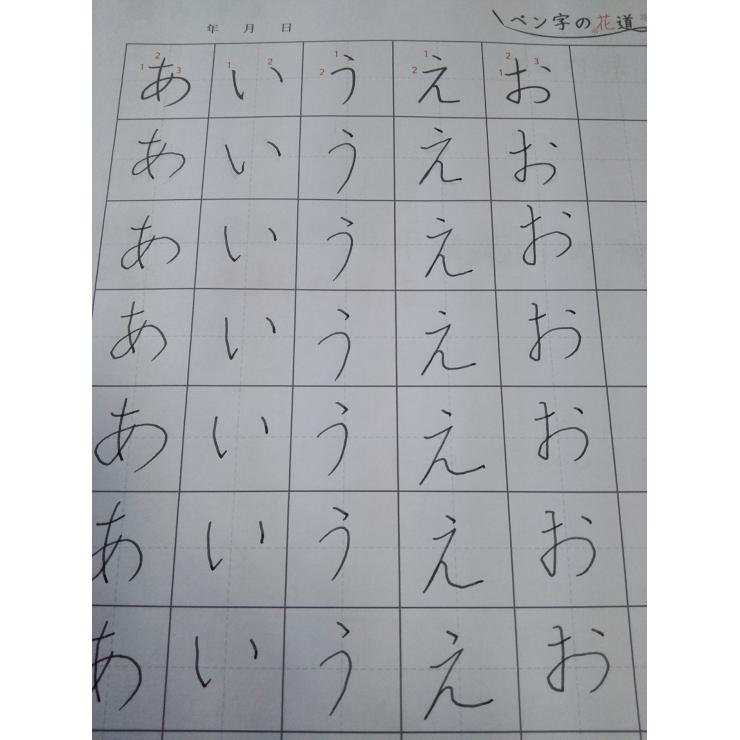 年 月 日
ペン字の花道
1 2 3 あ 1 2 い 1 2 う 1 2 え 1 2 3 お
あ い う え お
あ い う え お
あ い う え お
あ い う え お
あ い う え お
あ い う え お